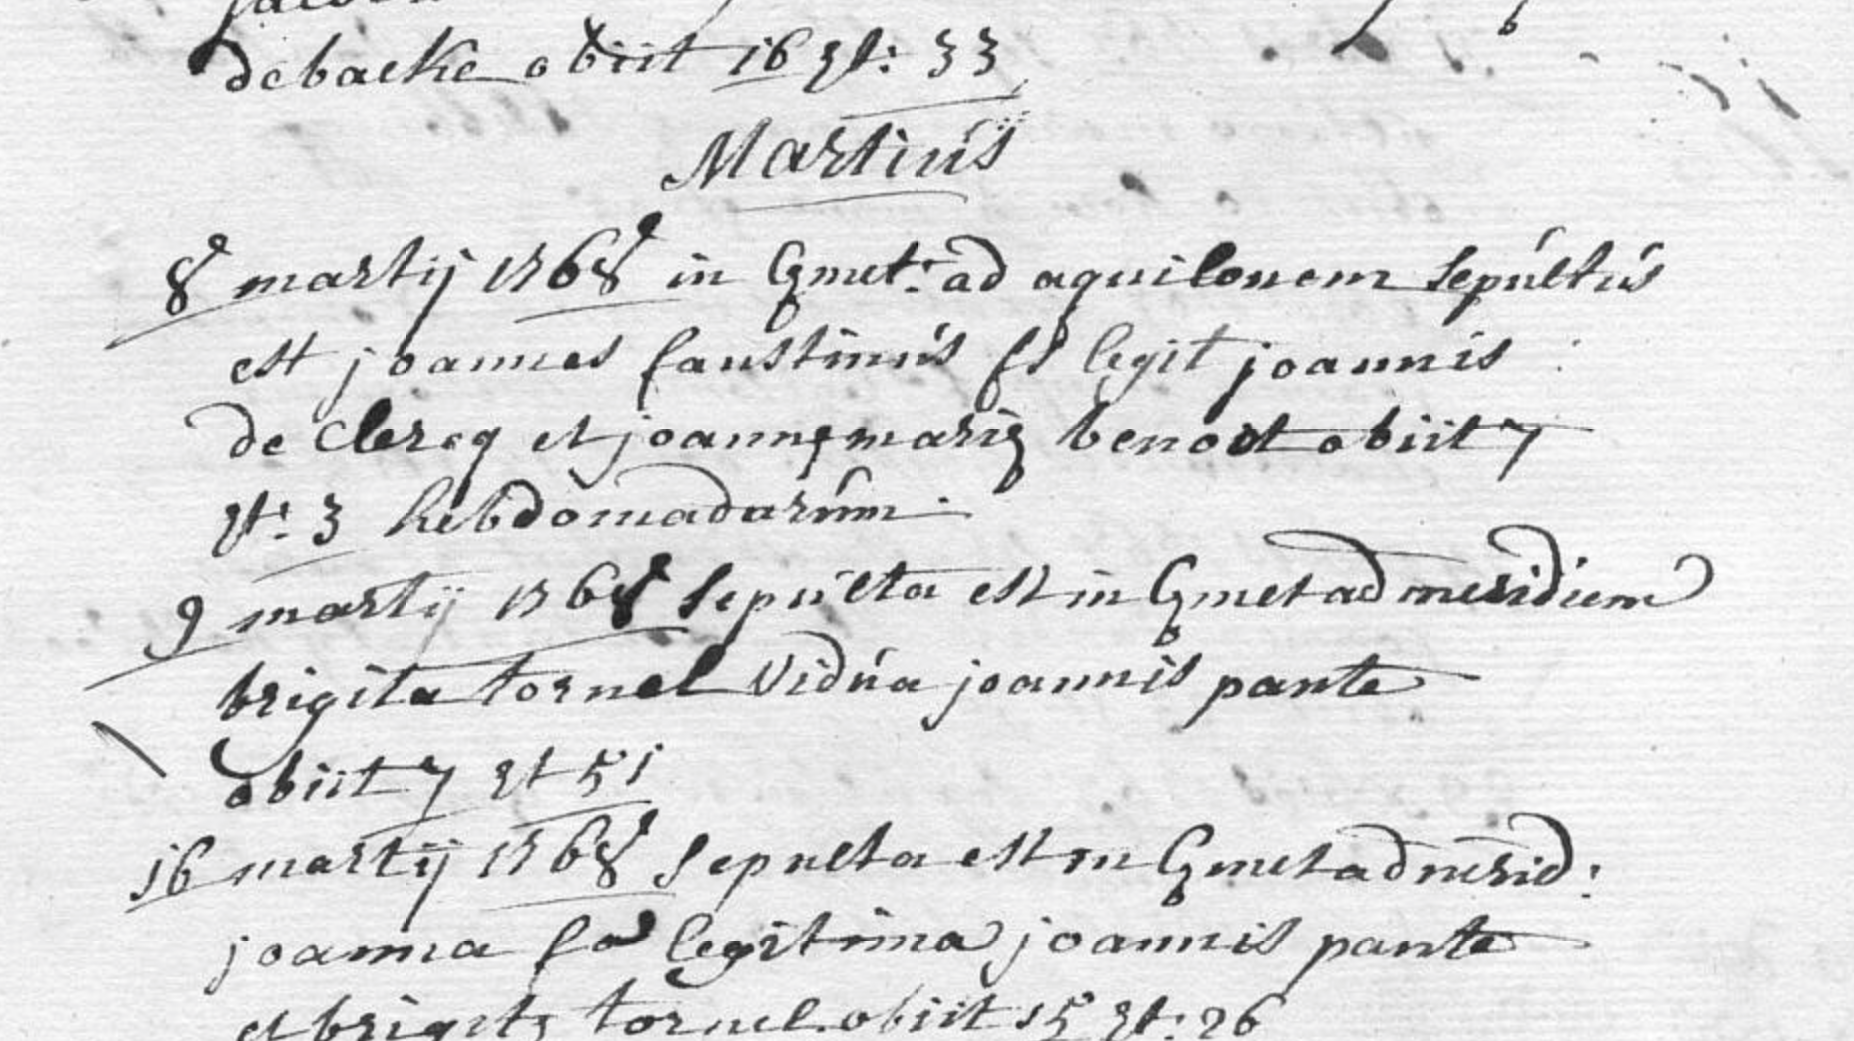 debacke obiit 16 æt: 33
Martius
8 martij 1768 in Cymet: ad aquilonem sepultus
est joannes faustinus fs legit joannis
de clercq et joannæ mariæ benoit obiit 7
æt: 3 hebdomadarum.
9 martij 1768 sepulta est in Cymet ad meridiem
brigita tornel vidua joannis pante
obiit 7 æt 51
16 martij 1768 sepulta est in Cymet ad merid:
joanna fa legitima joannis pante
et brigitæ tornel obiit 15 æt: 26